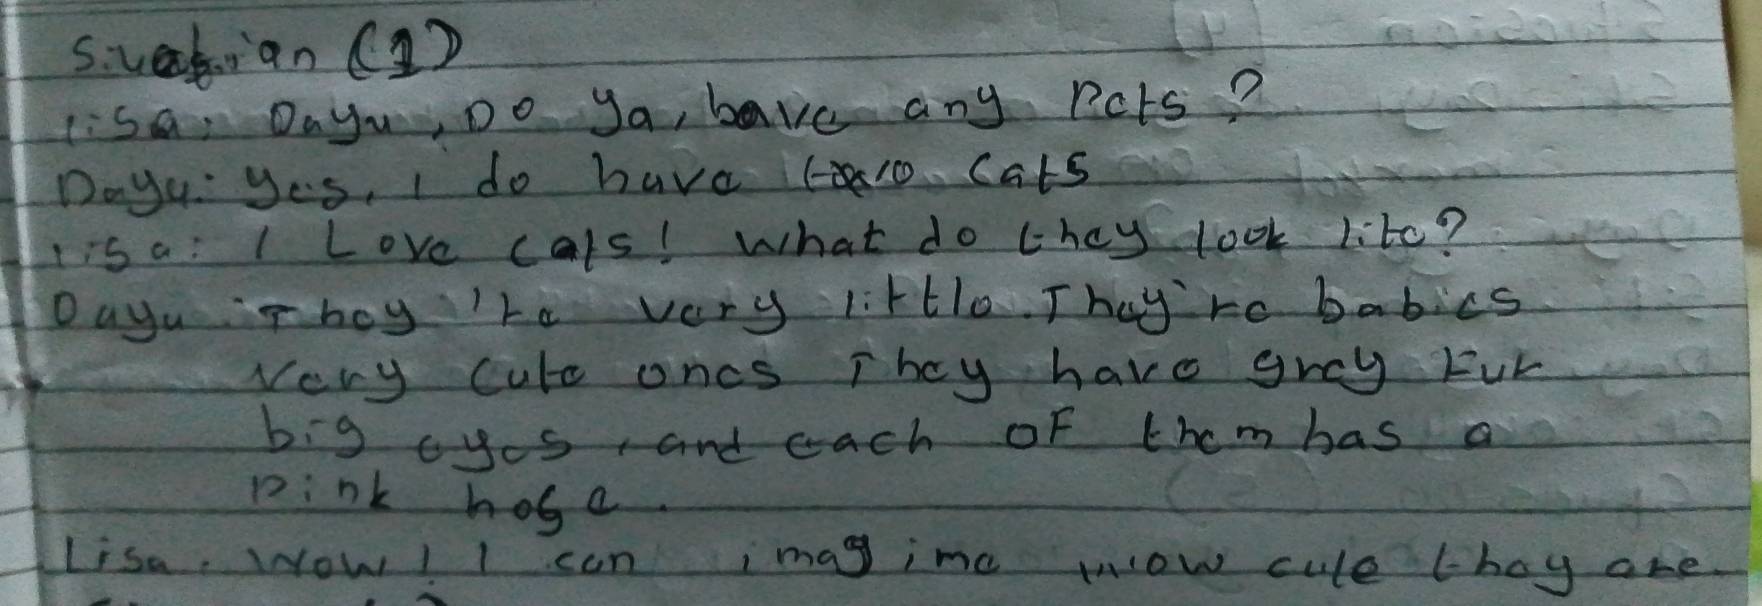 Situation (1)
Lisa: Dayu, Do you have any Pets?
Dayu: yes, I do have two cats
Lisa: I Love cats! What do they look like?
Dayu: They're very little. They're babies
Very cute ones They have grey Fur
big eyes, and each of them has a
Pink nose.
Lisa: Wow! I can imagine how cute they are.